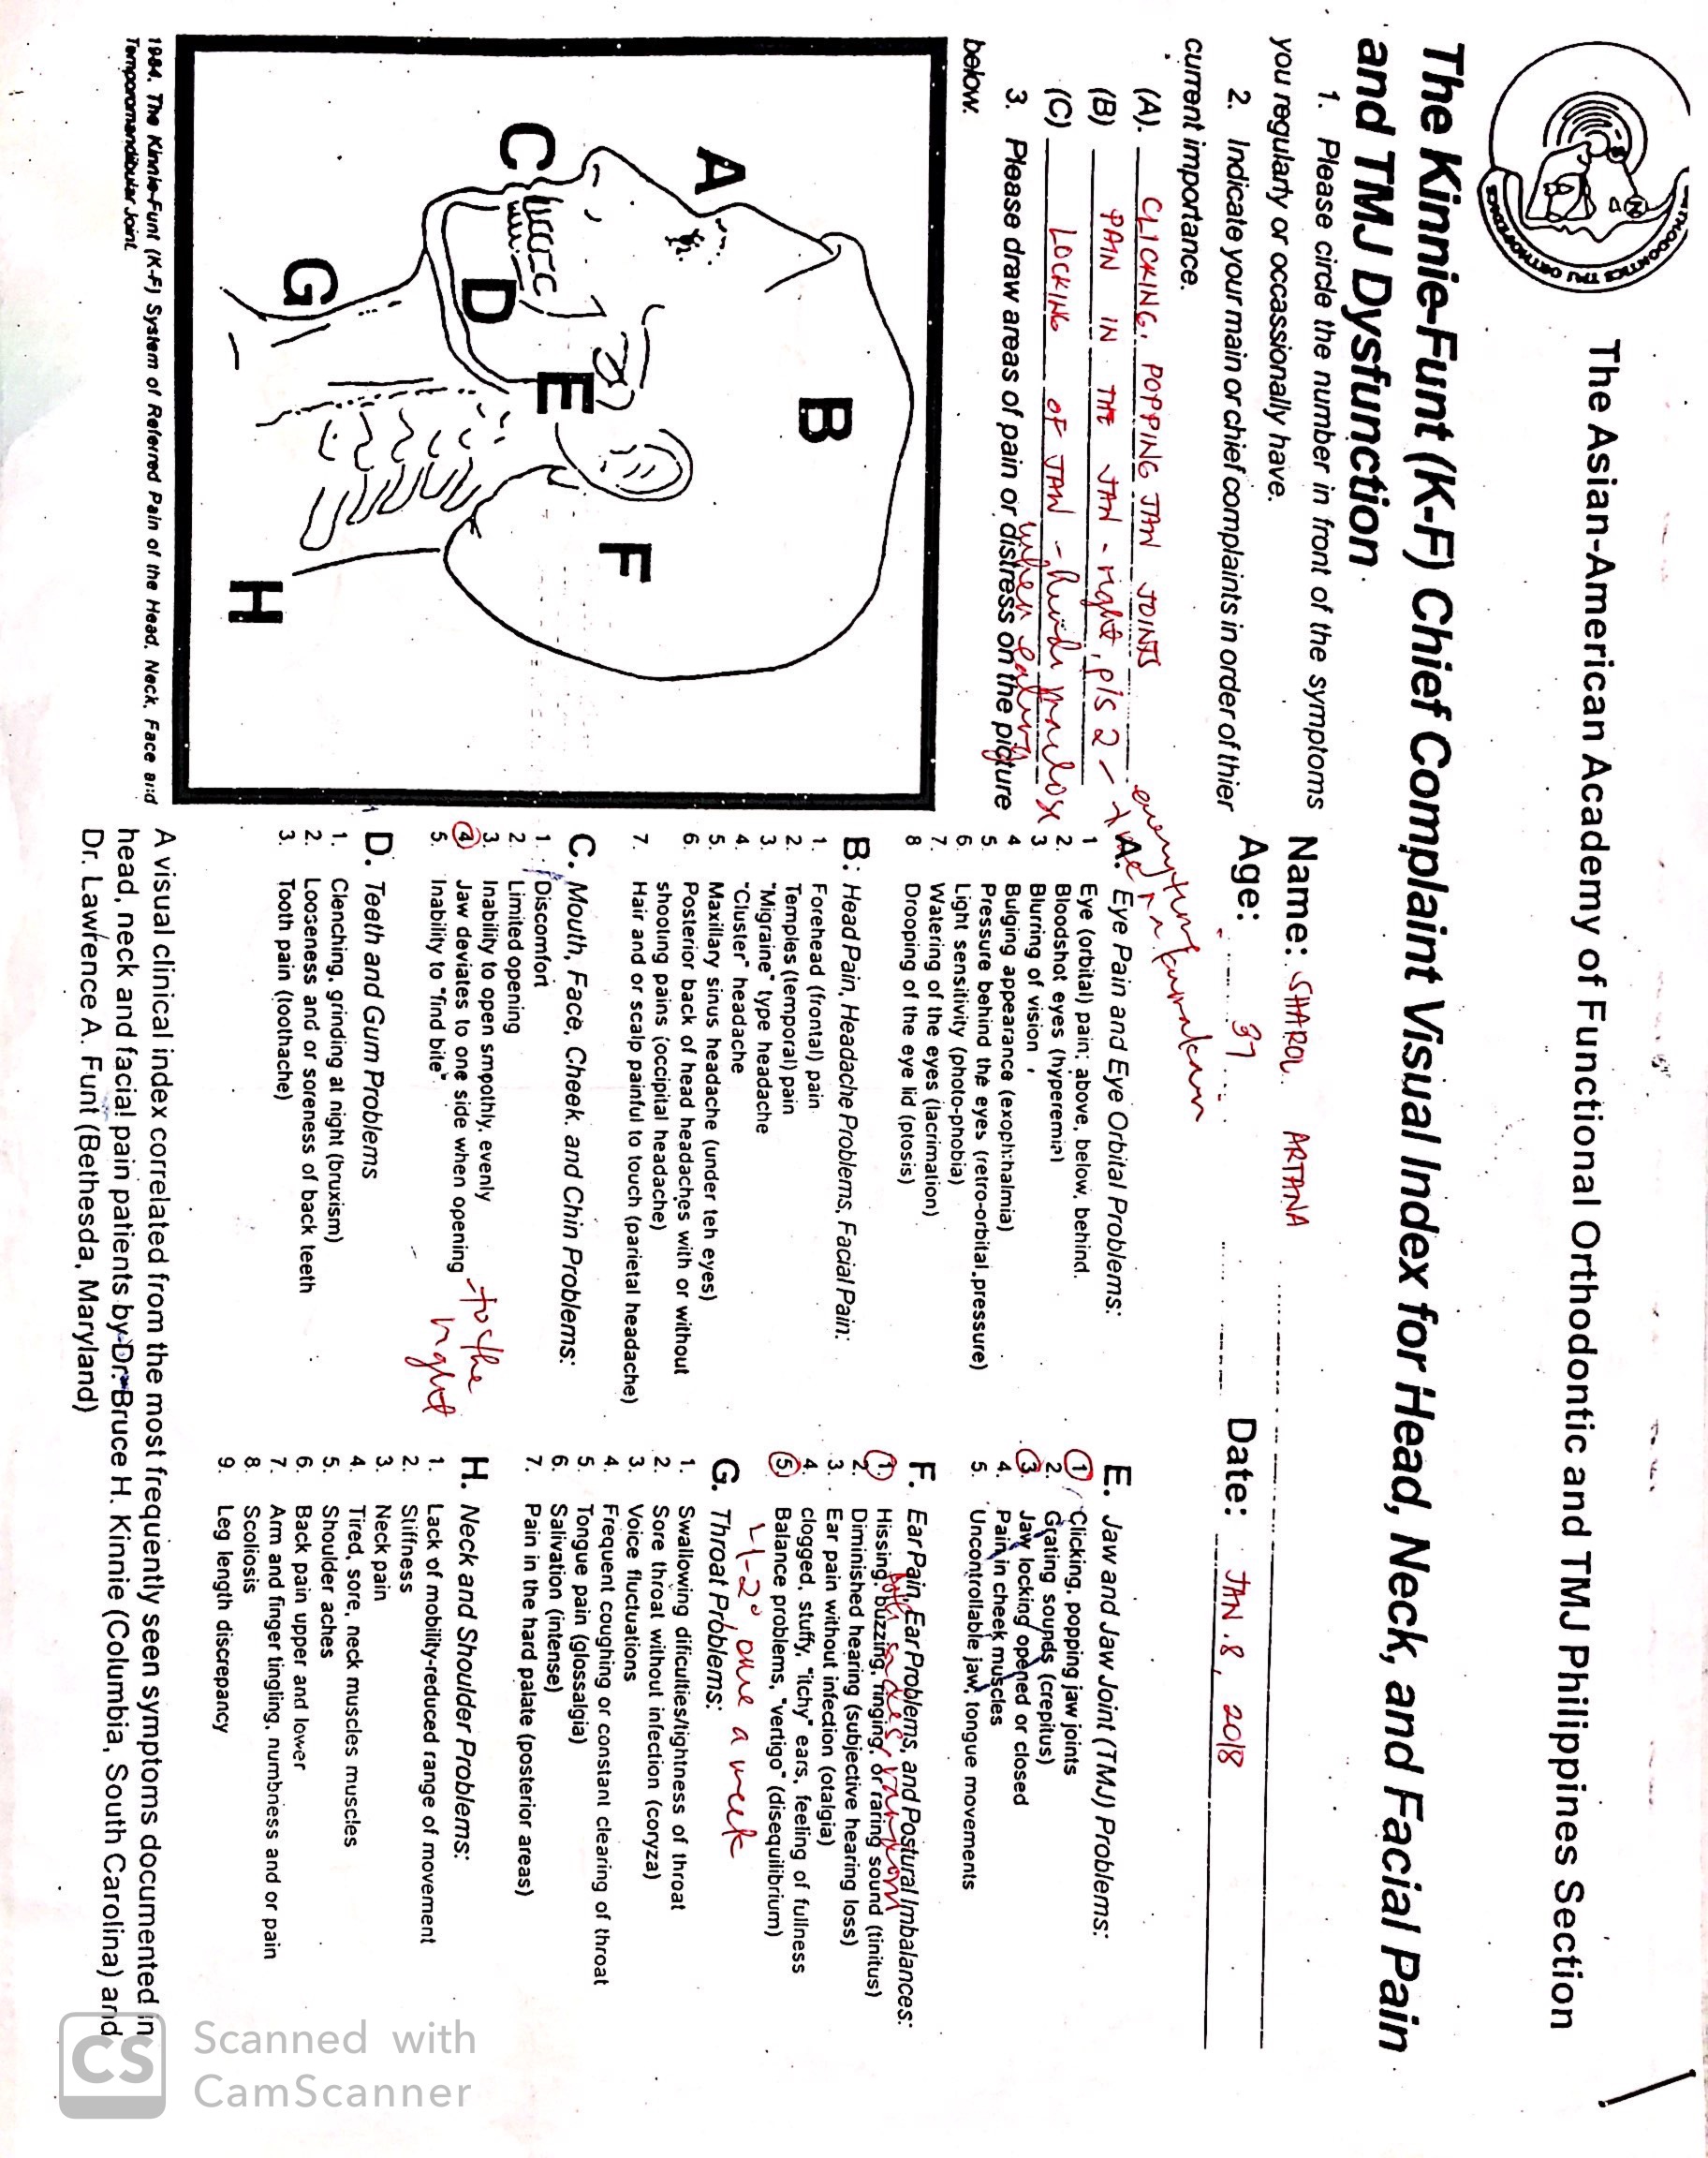 ORTHODONTICS TMJ ORTHOPEDICS
The Asian-American Academy of Functional Orthodontic and TMJ Philippines Section
The Kinnie-Funt (K-F) Chief Complaint Visual Index for Head, Neck, and Facial Pain
and TMJ Dysfunction
1. Please circle the number in front of the symptoms
you regularly or occassionally have.
2. Indicate your main or chief complaints in order of thier
current importance.
(A). CLICKING, POPPING JAW JOINTS
(B) PAIN IN THE JAW - right, p/s 2 -
everytime
(C) LOCKING OF JAW -
when eating
3. Please draw areas of pain or distress on the picture
below.
A
B
C
D
E
F
G
H
1984. The Kinnie-Funt (K-F) System of Referred Pain of the Head, Neck, Face and
Temporomandibular Joint.
Name: SHAROL ARTANA
Age: 37
Date: JAN. 8, 2018
A. Eye Pain and Eye Orbital Problems:
1 Eye (orbital) pain: above, below, behind.
2. Bloodshot eyes (hyperemia)
3 Blurring of vision
4 Bulging appearance (exophthalmia)
5. Pressure behind the eyes (retro-orbital pressure)
6. Light sensitivity (photo-phobia)
7. Watering of the eyes (lacrimation)
8 Drooping of the eye lid (ptosis)
B: Head Pain, Headache Problems, Facial Pain:
1. Forehead (frontal) pain
2 Temples (temporal) pain
3. "Migraine" type headache
4. "Cluster" headache
5. Maxillary sinus headache (under teh eyes)
6 Posterior back of head headaches with or without
shooting pains (occipital headache)
7. Hair and or scalp painful to touch (parietal headache)
C. Mouth, Face, Cheek. and Chin Problems:
1. Discomfort
2 Limited opening
3. Inability to open smoothly. evenly
4 Jaw deviates to one side when opening - to the
right
5. Inability to "find bite"
D. Teeth and Gum Problems
1. Clenching, grinding at night (bruxism)
2. Looseness and or soreness of back teeth
3. Tooth pain (toothache)
E. Jaw and Jaw Joint (TMJ) Problems:
1 Clicking, popping jaw joints
2 Grating sounds (crepitus)
3. Jaw locking opened or closed
4. Pain in cheek muscles
5. Uncontrollable jaw, tongue movements
F. Ear Pain, Ear Problems, and Postural Imbalances:
both sides, random
1. Hissing, buzzing, ringing, or raring sound (tinitus)
2. Diminished hearing (subjective hearing loss)
3. Ear pain without infection (otalgia)
4. clogged, stuffy, "itchy" ears, feeling of fullness
5 Balance problems, "vertigo" (disequilibrium)
1-2, once a week
G. Throat Problems:
1. Swallowing dificulties/tightness of throat
2. Sore throat without infection (coryza)
3. Voice fluctuations
4. Frequent coughing or constant clearing of throat
5. Tongue pain (glossalgia)
6. Salivation (intense)
7. Pain in the hard palate (posterior areas)
H. Neck and Shoulder Problems:
1. Lack of mobility-reduced range of movement
2. Stiffness
3. Neck pain
4. Tired, sore, neck muscles muscles
5. Shoulder aches
6. Back pain upper and lower
7. Arm and finger tingling, numbness and or pain
8. Scoliosis
9. Leg length discrepancy
A visual clinical index correlated from the most frequently seen symptoms documented in
head, neck and facial pain patients by Dr. Bruce H. Kinnie (Columbia, South Carolina) and
Dr. Lawrence A. Funt (Bethesda, Maryland)
CS
Scanned with
CamScanner